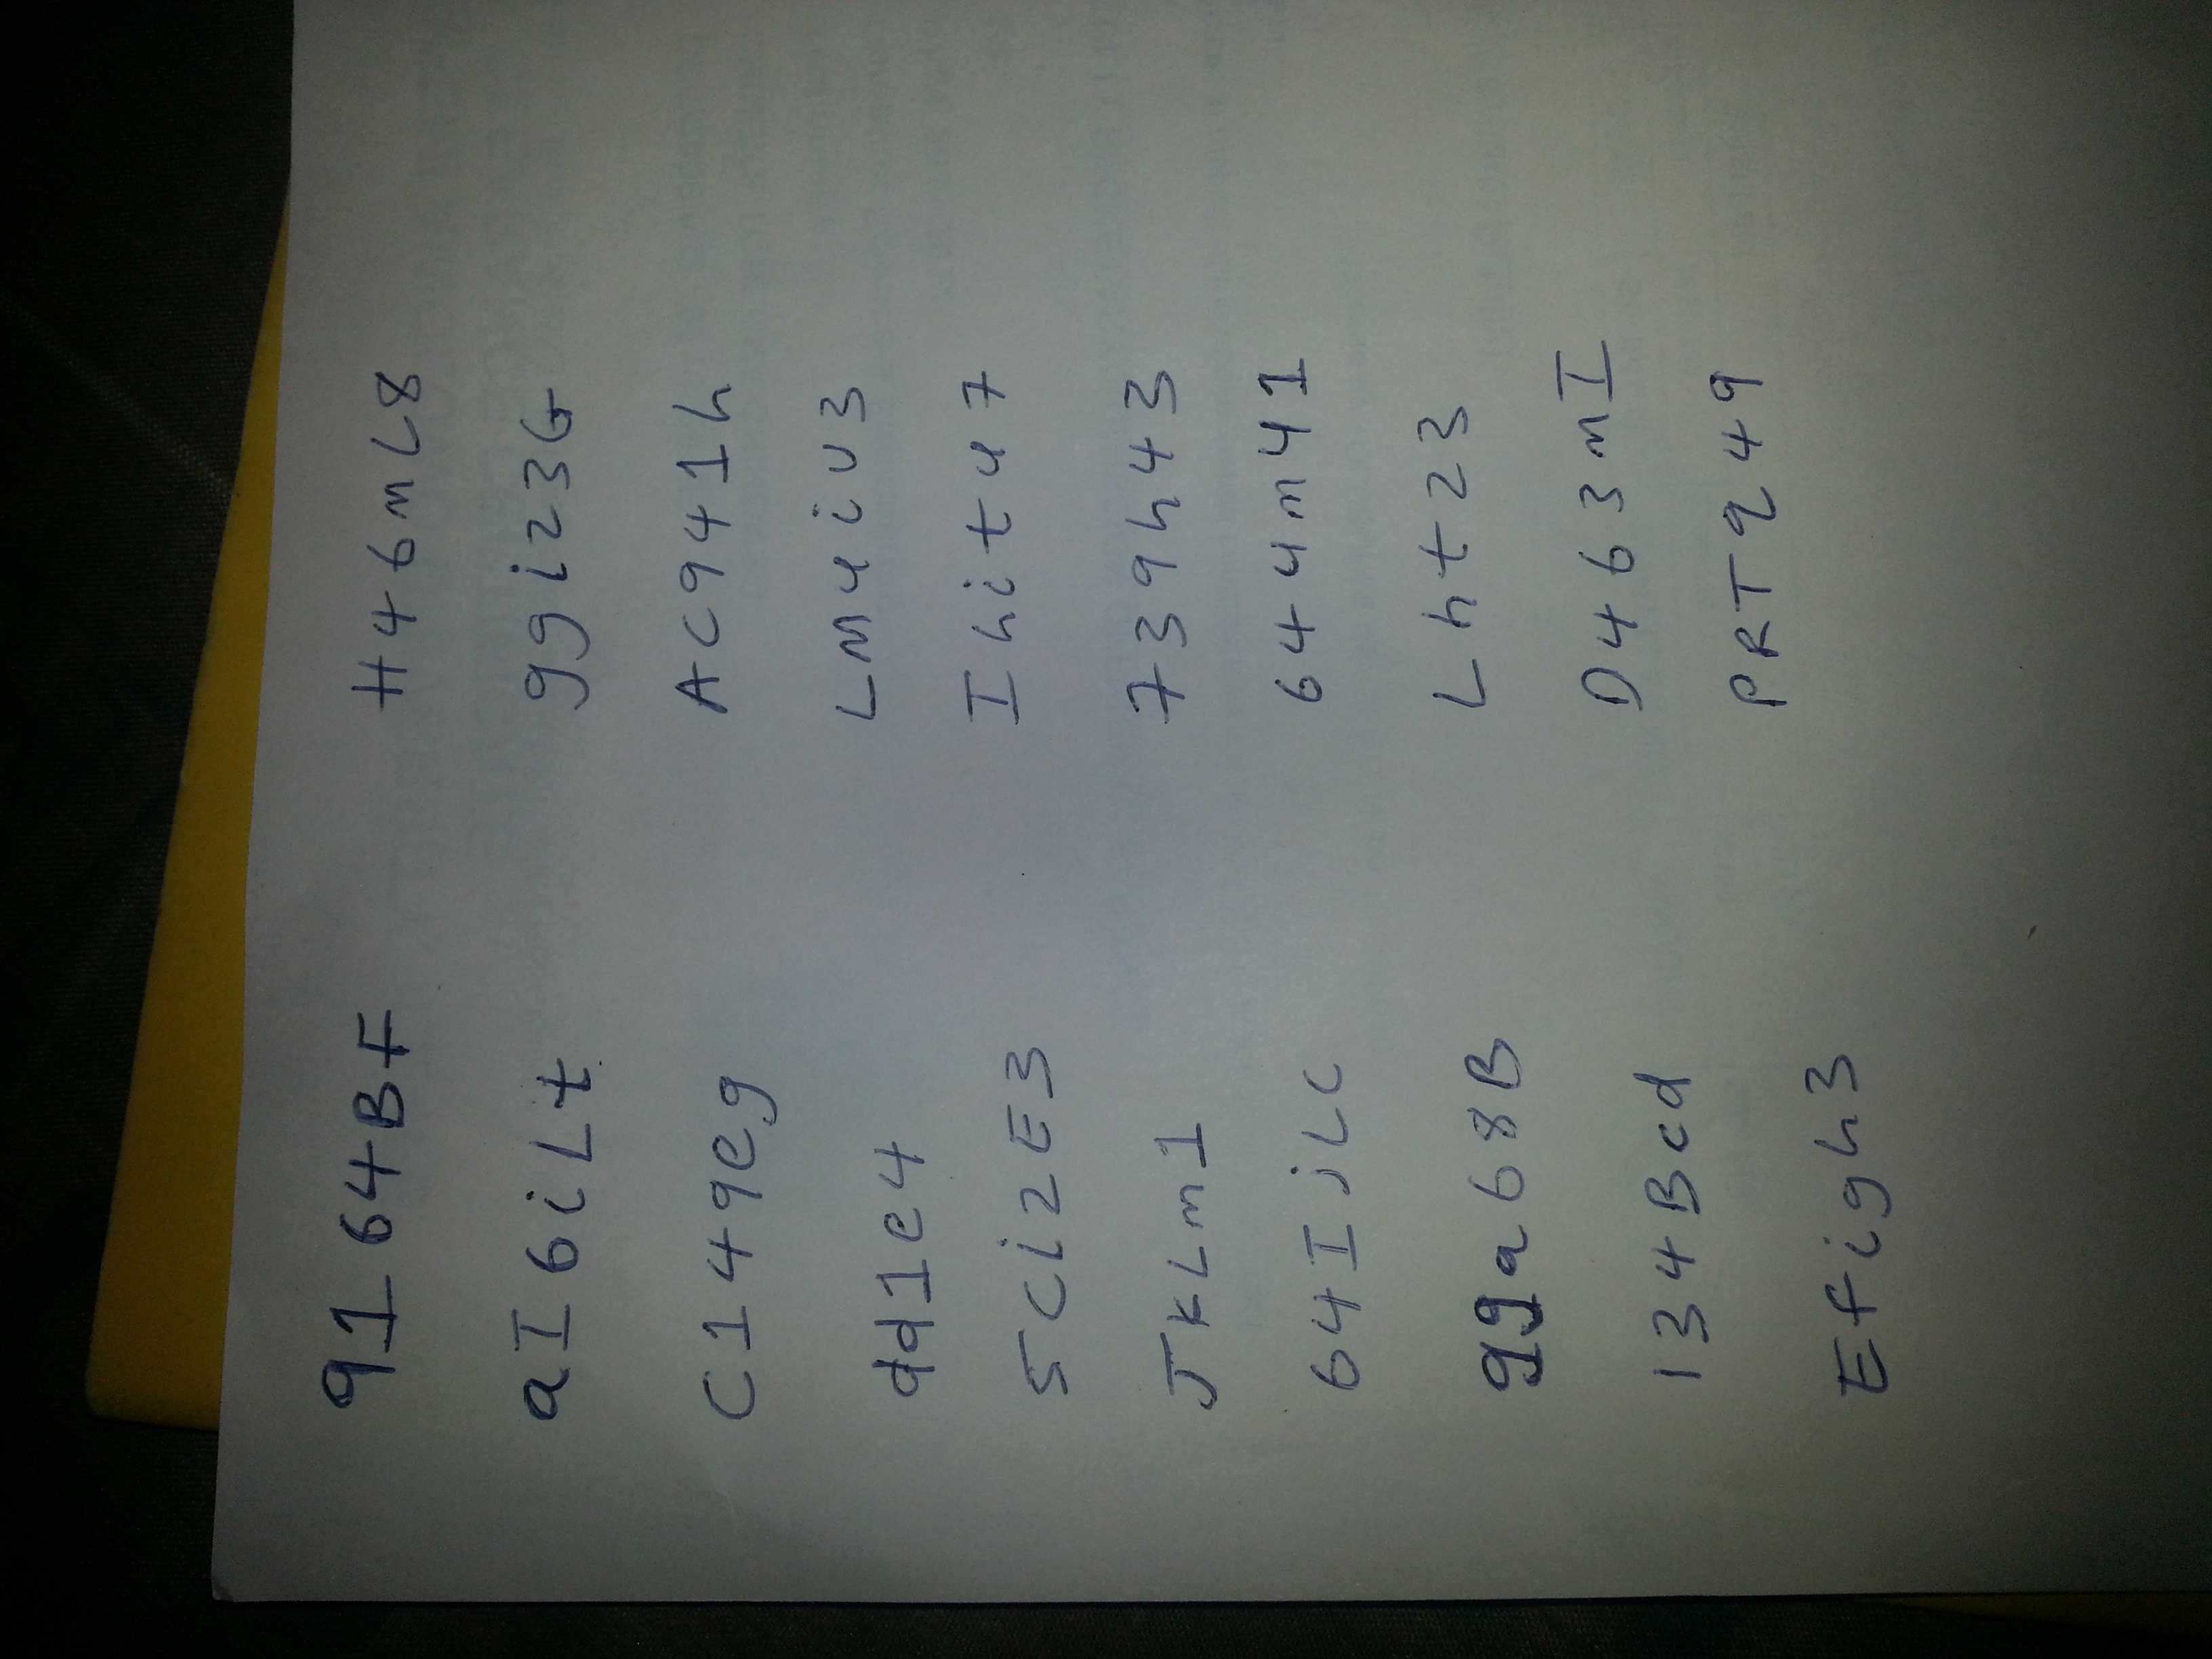 9164BF
aI6iLt
C149eg
dd1e4
5Ci2E3
JKLm1
64IjLC
gga68B
134Bcd
Efigh3
H46mL8
ggi23G
AC941h
LM4iU3
Ihit47
739h43
644m41
Lht23
D463mI
PRTq49